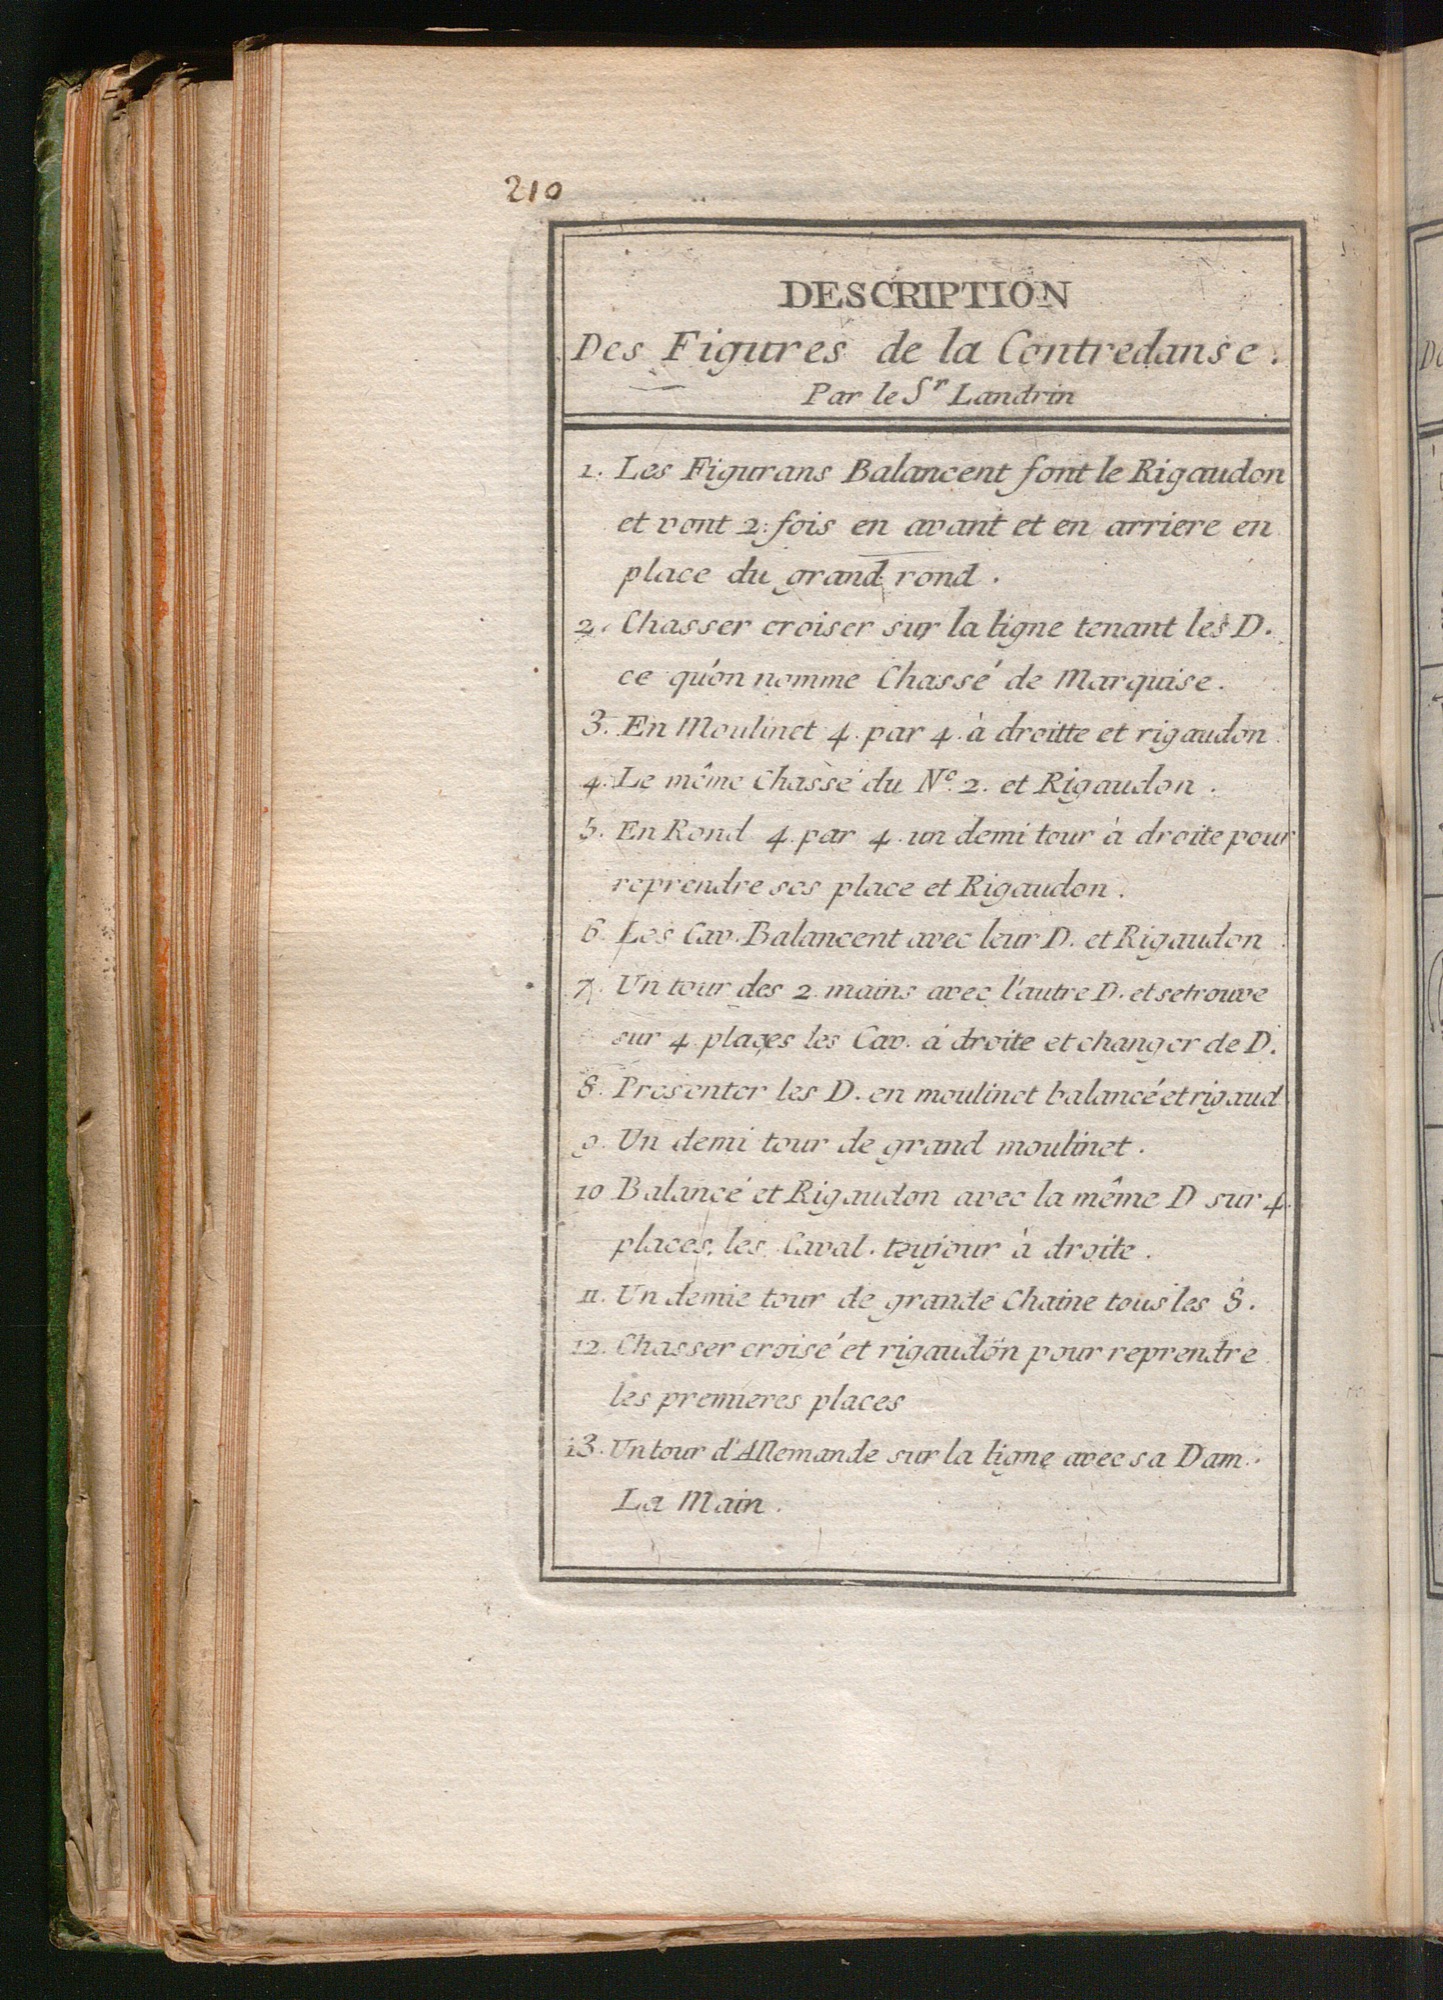 210
DESCRIPTION
Des Figures de la Contredanse.
Par le Sr Landrin
1. Les Figurans Balancent font le Rigaudon
et vont 2. fois en avant et en arriere en
place du grand rond.
2. Chasser croiser sur la ligne tenant les D.
ce qu'on nomme Chassé de Marquise.
3. En Moulinet 4. par 4. à droitte et rigaudon.
4. Le même Chassé du No. 2. et Rigaudon.
5. En Rond 4. par 4. un demi tour à droite pour
reprendre ses place et Rigaudon.
6. Les Cav. Balancent avec leur D. et Rigaudon
7. Un tour des 2 mains avec l'autre D. et se trouve
sur 4 places les Cav. à droite et changer de D.
8. Presenter les D. en moulinet balancé et rigaud
9. Un demi tour de grand moulinet.
10 Balancé et Rigaudon avec la même D sur 4.
places, les Caval. toujour à droite.
11. Un demie tour de grande Chaine tous les 8.
12. Chasser croisé et rigaudon pour reprendre
les premieres places
13. Un tour d'Allemande sur la ligne avec sa Dam.
La Main.